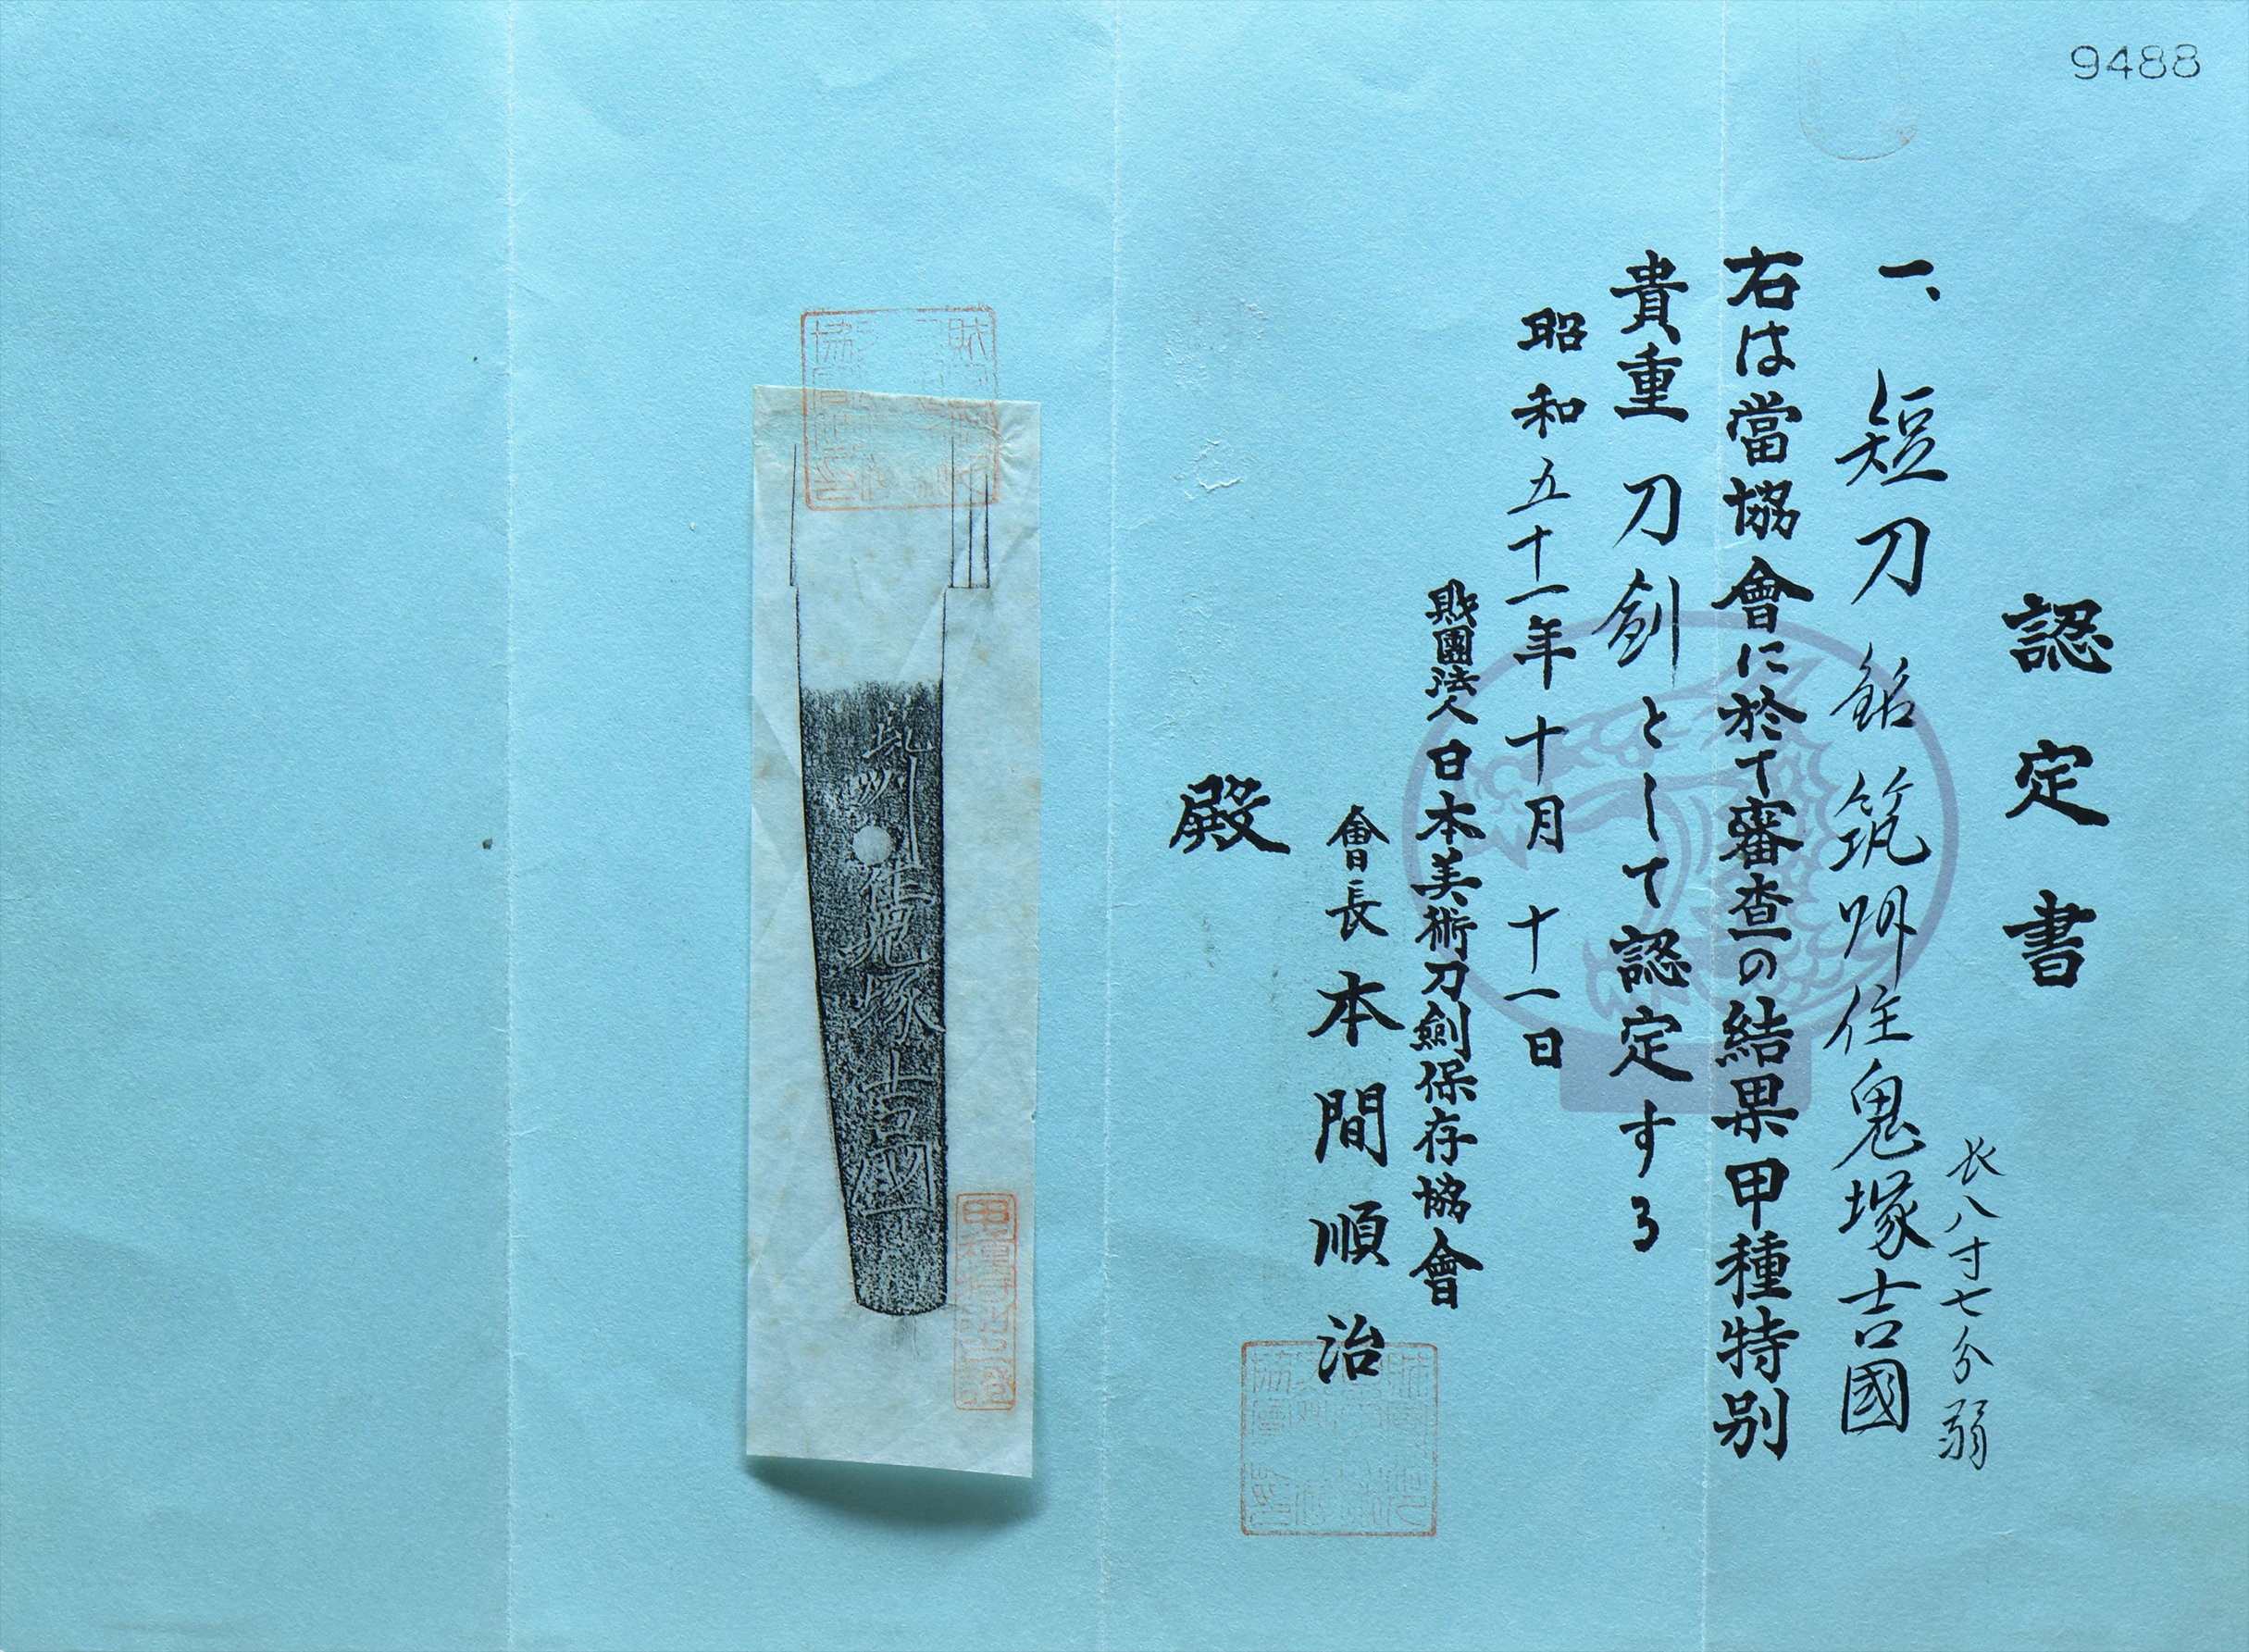 9488
認定書
一、短刀 銘 筑州住鬼塚吉國
長八寸七分弱
右は當協會に於て審査の結果甲種特別
貴重刀剣として認定する
昭和五十一年十月十一日
財團法人日本美術刀劍保存協會
會長 本間順治
殿
筑州住鬼塚吉國